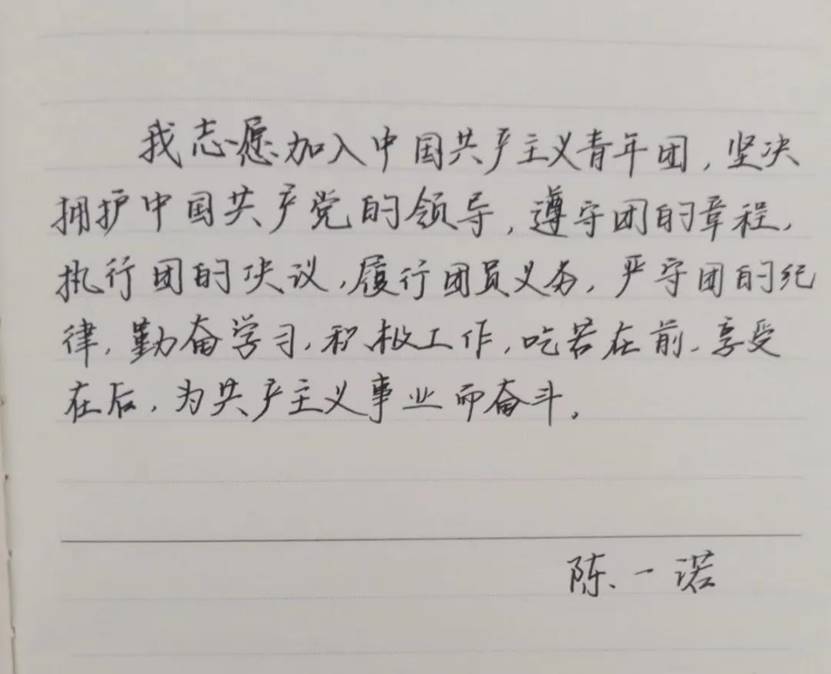 我志愿加入中国共产主义青年团,坚决
拥护中国共产党的领导,遵守团的章程,
执行团的决议,履行团员义务,严守团的纪
律,勤奋学习,积极工作,吃苦在前,享受
在后,为共产主义事业而奋斗。
陈一诺